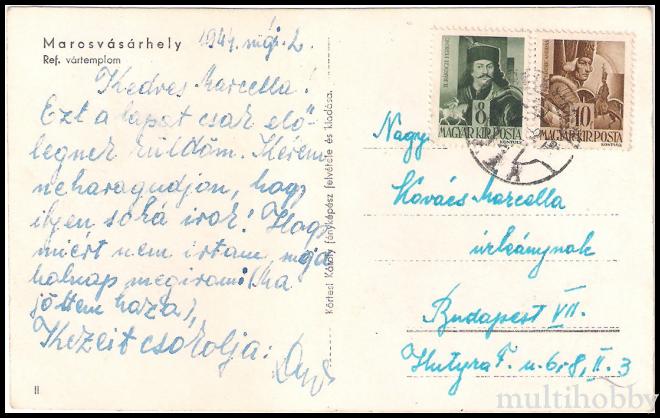 Marosvásárhely
Ref. vártemplom
Kedves Marcella!
Ezt a lapot csak elő-
legnek küldöm. Kérem
ne haragudjon, hogy
ilyen soká írok! Hogy
miért nem írtam, majd
holnap megírom! (ma
jöttem haza),
Kezeit csókolja:
II
Körtesi Károly fényképész felvétele és kiadása.
II. RÁKÓCZI FERENC
8
MAGYAR KIR. POSTA
10
MAGYAR KIR. POSTA
Nagy
Kovács Marcella
úrleánynak
Budapest VII.
Hutyra F. u. 6-8, II. 3
multihobby